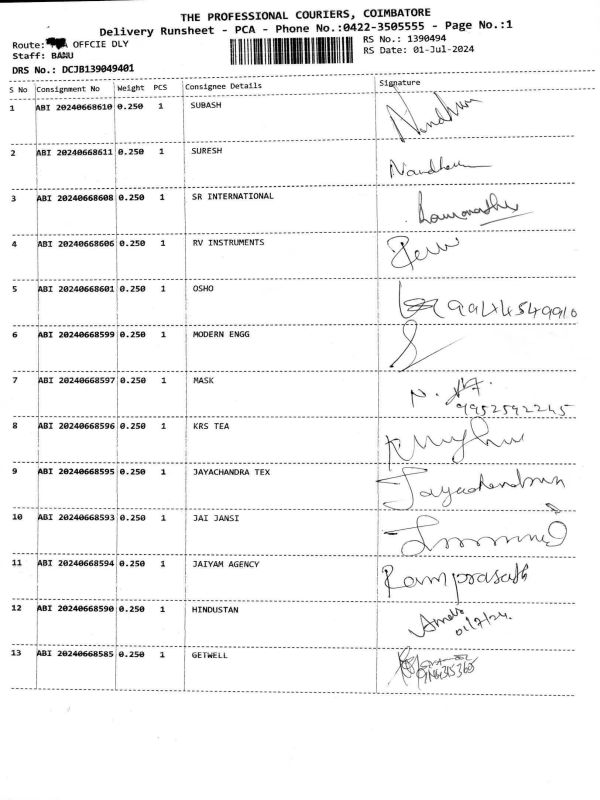 THE PROFESSIONAL COURIERS, COIMBATORE
Delivery Runsheet - PCA - Phone No.:0422-3505555 - Page No.:1
Route: OFFCIE DLY
RS No.: 1390494
Staff: BANU
RS Date: 01-Jul-2024
DRS No.: DCJB139049401
S No Consignment No Weight PCS Consignee Details Signature
1 ABI 20240668610 0.250 1 SUBASH
2 ABI 20240668611 0.250 1 SURESH
3 ABI 20240668608 0.250 1 SR INTERNATIONAL
4 ABI 20240668606 0.250 1 RV INSTRUMENTS
5 ABI 20240668601 0.250 1 OSHO 9944549910
6 ABI 20240668599 0.250 1 MODERN ENGG
7 ABI 20240668597 0.250 1 MASK
9952592245
8 ABI 20240668596 0.250 1 KRS TEA
9 ABI 20240668595 0.250 1 JAYACHANDRA TEX Jayachandran
10 ABI 20240668593 0.250 1 JAI JANSI
11 ABI 20240668594 0.250 1 JAIYAM AGENCY Ramprasath
12 ABI 20240668590 0.250 1 HINDUSTAN
01/7/24.
13 ABI 20240668585 0.250 1 GETWELL